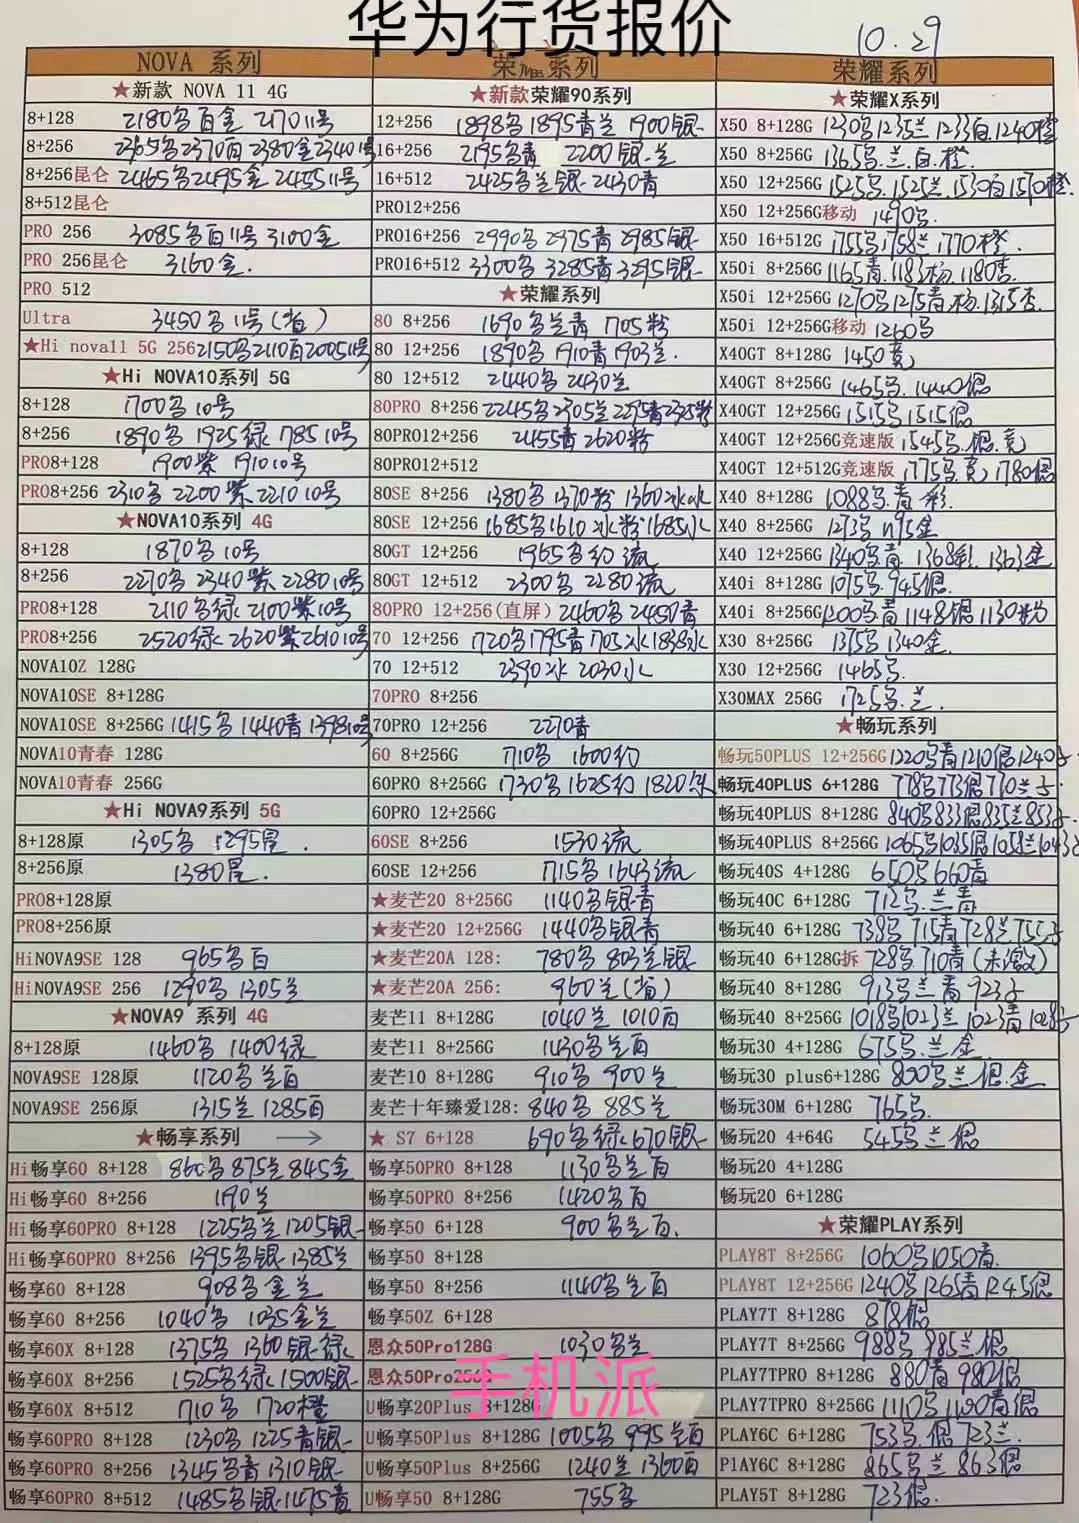 华为行货报价
10.29
NOVA 系列
★新款 NOVA 11 4G
8+128 2180名百金 2170 11号
8+256 2365名2370百2380金2340 11号
8+256昆仑 2465名2495金 2455 11号
8+512昆仑
PRO 256 3085名百11号 3100金
PRO 256昆仑 3160金.
PRO 512
Ultra 3450名11号(省)
★Hi nova11 5G 256 2150名2110百2005 11号
★Hi NOVA10系列 5G
8+128 1700名10号
8+256 1890名 1925绿 1785 10号
PRO8+128 1900紫 1910 10号
PRO8+256 2310名 2200紫 2210 10号
★NOVA10系列 4G
8+128 1870名10号
8+256 2270名 2340紫 2280 10号
PRO8+128 2110名绿 2100紫10号
PRO8+256 2520绿 2620紫2610 10号
NOVA10Z 128G
NOVA10SE 8+128G
NOVA10SE 8+256G 1415名 1440青 1398 10号
NOVA10青春 128G
NOVA10青春 256G
★Hi NOVA9系列 5G
8+128原 1305名 1295昆.
8+256原 1380昆.
PRO8+128原
PRO8+256原
HiNOVA9SE 128 965名百
HiNOVA9SE 256 1290名 1305兰
★NOVA9 系列 4G
8+128原 1460名 1400绿
NOVA9SE 128原 1120名兰百
NOVA9SE 256原 1315兰 1285百
★畅享系列 →
Hi畅享60 8+128 860名 875兰 845金
Hi畅享60 8+256 1190兰
Hi畅享60PRO 8+128 1225名兰1205银
Hi畅享60PRO 8+256 1395名银 1385兰
畅享60 8+128 908名金兰
畅享60 8+256 1040名 1035金兰
畅享60X 8+128 1375名 1360银绿
畅享60X 8+256 1525名绿 1500银
畅享60X 8+512 1710名 1720橙
畅享60PRO 8+128 1230名 1225青银
畅享60PRO 8+256 1345名青 1310银
畅享60PRO 8+512 1485名银 1475青
荣耀系列
★新款荣耀90系列
12+256 1898名1895青兰 1900银
16+256 2195名青 2200银兰
16+512 2425名兰银 2430青
PRO12+256
PRO16+256 2990名 2975青 2985银
PRO16+512 3300名 3285青 3295银
★荣耀系列
80 8+256 1690名兰青 1705粉
80 12+256 1890名 1910青 1903兰.
80 12+512 2440名 2430兰
80PRO 8+256 2245名2305兰2295青2325粉
80PRO12+256 2455青 2620粉
80PRO12+512
80SE 8+256 1380名 1370粉 1360冰水
80SE 12+256 1685名1610冰粉1685水
80GT 12+256 1965名幻流
80GT 12+512 2300名 2280流
80PRO 12+256(直屏) 2460名 2450青
70 12+256 1720名1795青1705冰1838水
70 12+512 2390冰 2030水
70PRO 8+256
70PRO 12+256 2270青
60 8+256G 1710名 1600幻
60PRO 8+256G 1730名 1625幻 1820冰
60PRO 12+256G
60SE 8+256 1530流
60SE 12+256 1715名 1643流
★麦芒20 8+256G 1140名银青
★麦芒20 12+256G 1440名银青
★麦芒20A 128: 780名 803兰银
★麦芒20A 256: 960兰(省)
麦芒11 8+128G 1040兰 1010百
麦芒11 8+256G 1430名兰百
麦芒10 8+128G 910名 900兰
麦芒十年臻爱128: 840名 885兰
★ S7 6+128 690名绿 670银
畅享50PRO 8+128 1130名兰百
畅享50PRO 8+256 1420名百
畅享50 6+128 900名兰百.
畅享50 8+128
畅享50 8+256 1140名兰百
畅享50Z 6+128
恩众50Pro128G 1030名兰
恩众50Pro256G
手机派
U畅享20Plus 8+128G
U畅享50Plus 8+128G 1005名 995兰百
U畅享50Plus 8+256G 1240兰 1360百
U畅享50 8+128G 755名
荣耀系列
★荣耀X系列
X50 8+128G 1230名1235兰1233白1240橙
X50 8+256G 1365名.兰.白.橙.
X50 12+256G 1525名.1525兰.1530白1570橙.
X50 12+256G移动 1490名.
X50 16+512G 1755名1758兰1770橙.
X50i 8+256G 1165青.1183杨.1180杏.
X50i 12+256G 1270名1275青.杨.1315杏.
X50i 12+256G移动 1260名
X40GT 8+128G 1450竞
X40GT 8+256G 1465名.1440偶
X40GT 12+256G 1515名1515偶
X40GT 12+256G竞速版 1545名.偶.竞
X40GT 12+512G竞速版 1775名.竞 1780偶
X40 8+128G 1088名.青.彩.
X40 8+256G 1273名 1195金
X40 12+256G 1340名青 1368彩 1363金
X40i 8+128G 1075名.945偶.
X40i 8+256G 1200名.青1148偶1130粉
X30 8+256G 1375名1340金.
X30 12+256G 1465名.
X30MAX 256G 1725名.兰.
★畅玩系列
畅玩50PLUS 12+256G 1220名青1210偶1240子.
畅玩40PLUS 6+128G 778名773偶770兰子.
畅玩40PLUS 8+128G 840名833偶835兰853子.
畅玩40PLUS 8+256G 1065名1035偶1058兰1043子
畅玩40S 4+128G 650名660青
畅玩40C 6+128G 712名.兰青
畅玩40 6+128G 738名715青728兰755子
畅玩40 6+128G拆 728名710青(未激)
畅玩40 8+128G 913名兰青 923子
畅玩40 8+256G 1018名1023兰1023青1028子
畅玩30 4+128G 675名.兰.金
畅玩30 plus6+128G 800名兰偶.金
畅玩30M 6+128G 765名.
畅玩20 4+64G 545名兰偶
畅玩20 4+128G
畅玩20 6+128G
★荣耀PLAY系列
PLAY8T 8+256G 1060名1050青.
PLAY8T 12+256G 1240名1265青1245偶
PLAY7T 8+128G 878偶
PLAY7T 8+256G 988名 985兰偶
PLAY7TPRO 8+128G 880青980偶
PLAY7TPRO 8+256G 1110名1100青偶
PLAY6C 6+128G 753名.偶723兰.
PlAY6C 8+128G 865名兰863偶
PLAY5T 8+128G 723偶.